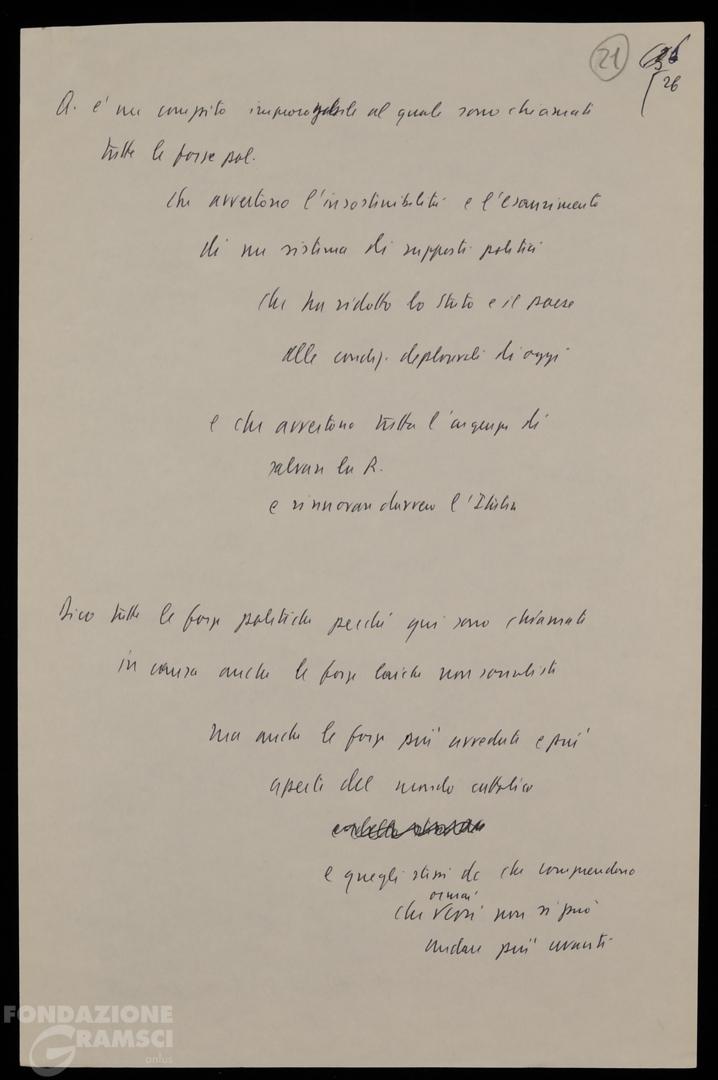 21
26
A. è un compito improrogabile al quale sono chiamate
tutte le forze pol.
che avvertono l'insostenibilità e l'esaurimento
di un sistema di rapporti politici
che ha ridotto lo Stato e il paese
alle condiz. deplorevoli di oggi
e che avvertono tutta l'urgenza di
salvare la R.
e rinnovare davvero l'Italia
Dico tutte le forze politiche perché qui sono chiamate
in causa anche le forze laiche non socialiste
ma anche le forze più avvedute e più
aperte del mondo cattolico
e quegli stessi dc che comprendono
ormai
che così non si può
andare più avanti
FONDAZIONE
GRAMSCI
onlus